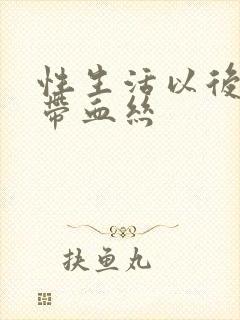 性生活以後
帶血絲
扶鱼丸